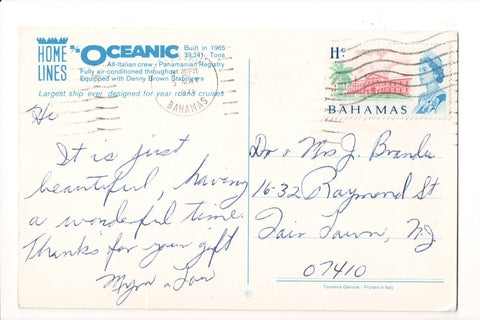 HOME LINES
S/S OCEANIC
Built in 1965
39,241 Tons
All-Italian crew - Panamanian Registry
Fully air-conditioned throughout
Equipped with Denny Brown Stabilizers
Largest ship ever designed for year round cruises
BAHAMAS
BAHAMAS
Hi
It is just
beautiful, having
a wonderful time.
Thanks for your gift
Myrn & Lou
Dr & Mrs J. Brandee
16-32 Raymond St
Fair Lawn, N.J.
07410
Printed in Italy